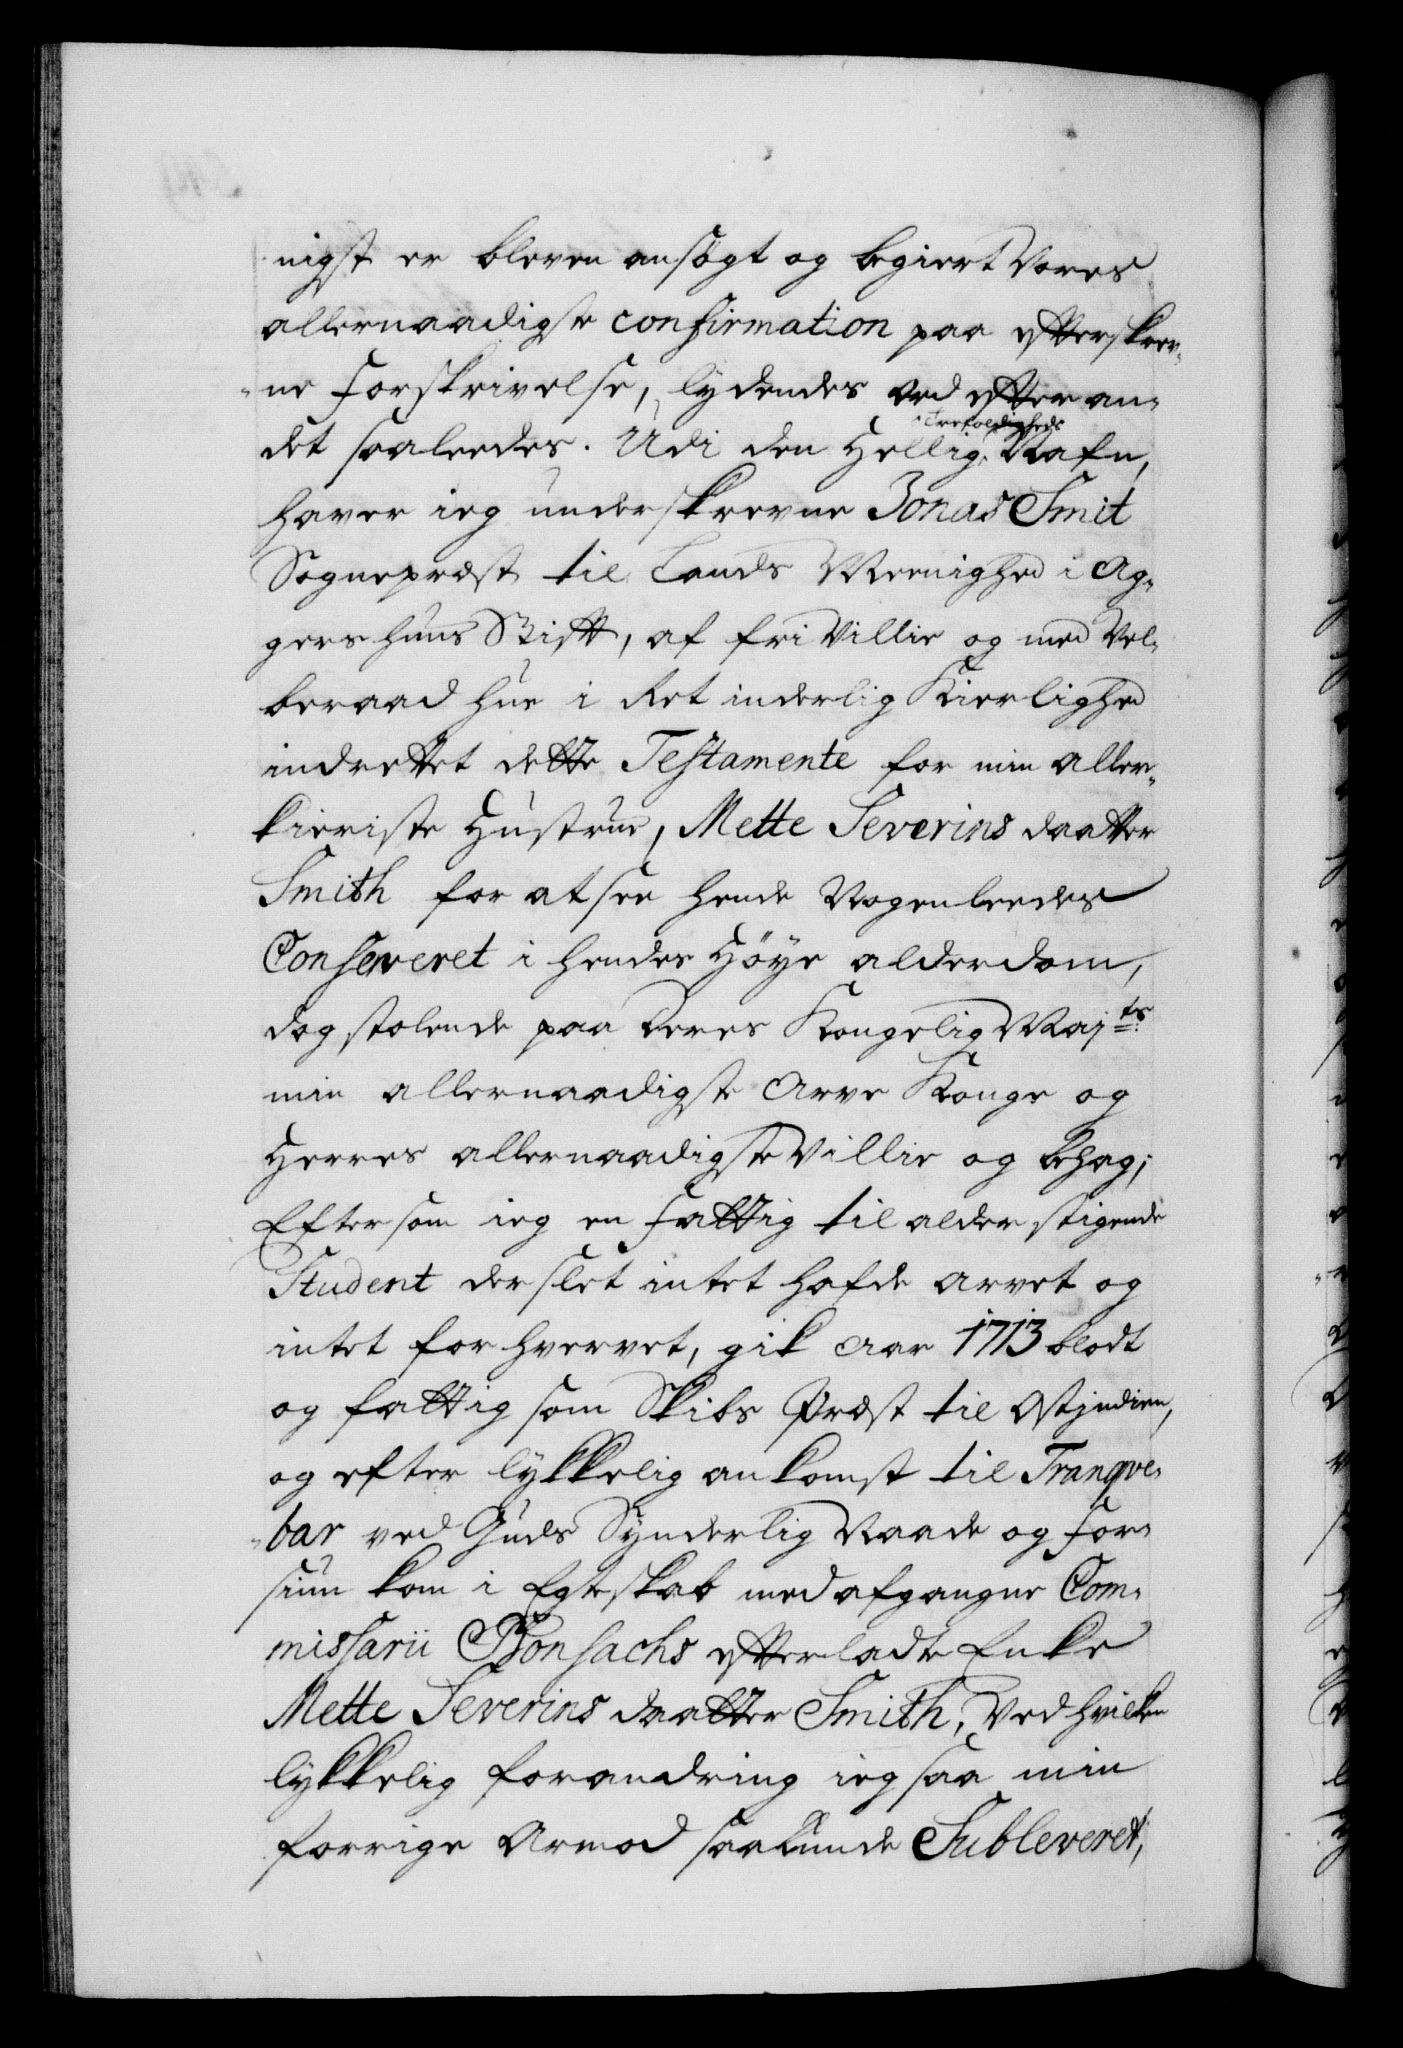 nigst er bleven ansøgt og begiert Vores
allernaadigste confirmation paa efterskrev-
ne Forskrivelse, lydendes ord efter an-
det saaleedes. Udi den Hellig Trefoldigheds Nafn,
haver ieg underskrevne Jonas Smit
Sognepræst til Lands Meenighed i Ag-
gershuus Stift, af fri Villie og med Vel-
beraad Hue i Ret inderlig Kierlighed
indrettet dette Testamente for min Aller-
kieriste Hustrue, Mette Severins daatter
Smith for at see hende Nogenleedes
Conserveret i hendes Høye alderdom,
dog stolende paa Deres Kongelig Maj:ts
min allernaadigste Arve Konge og
Herres allernaadigste Villie og behag;
Eftersom ieg en Fattig til alder stigende
Student der slet intet hafde arvet og
intet forhvervet, gik Aar 1713 blodt
og fattig som Skibs Præst til Ostjndien,
og efter lykkelig ankomst til Tranqve-
bar ved Guds Synderlig Naade og For-
siun kom i Egteskab med afgangne Com-
missarii Bonsachs efterladte Enke
Mette Severins daatter Smith, Ved hvilken
lykkelig forandring ieg saa min
forrige Armod saalunde Subleveret,